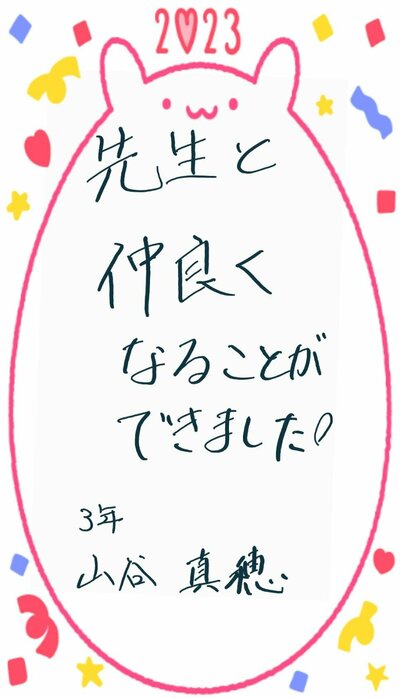 2023
先生と
仲良く
なることが
できました!
3年
山谷 真穂